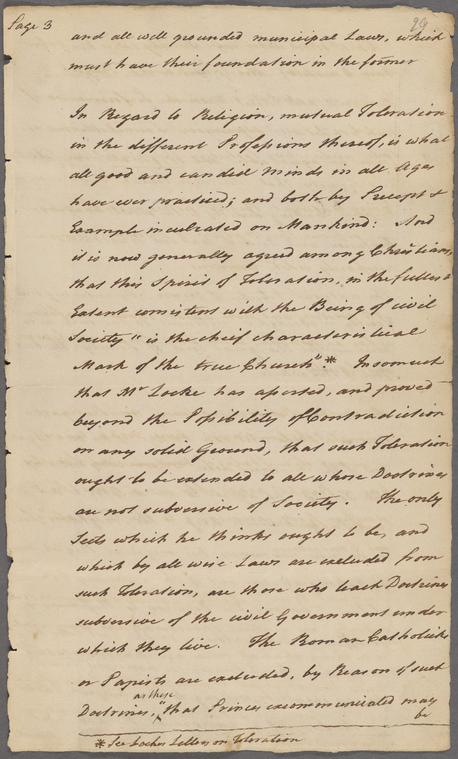 Page 3
29
and all well grounded municipal Laws, which
must have their foundation in the former
In Regard to Religion, mutual Toleration
in the different Professions thereof, is what
all good and candid Minds in all Ages
have ever practiced; and both by Precept &
Example inculcated on Mankind: And
it is now generally agreed among Christians,
that this Spirit of Toleration, in the fullest
Extent consistent with the Being of civil
Society "is the cheif characteristical
Mark of the true Church".* Insomuch
that Mr Locke has asserted, and proved
beyond the Possibility of Contradiction
on any solid Ground, that such Toleration
ought to be extended to all whose Doctrines
are not subversive of Society. The only
Sects which he thinks ought to be, and
which by all wise Laws are excluded from
such Toleration, are those who teach Doctrines
subversive of the civil Government under
which they live. The Roman Catholicks
or Papists are excluded, by Reason of such
Doctrines, as these "that Princes excommunicated may
be
* See Lockes Letters on Toleration